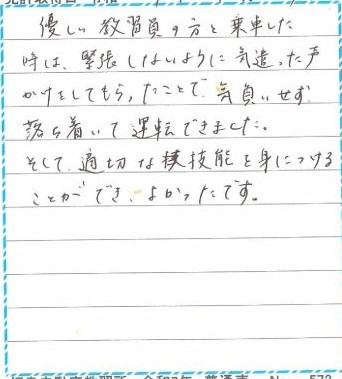 優しい教習員の方と乗車した
時は、緊張しないように気遣った声
かけをしてもらったことで、気負いせず
落ち着いて運転できました。
そして、適切な技能を身につける
ことができ、よかったです。